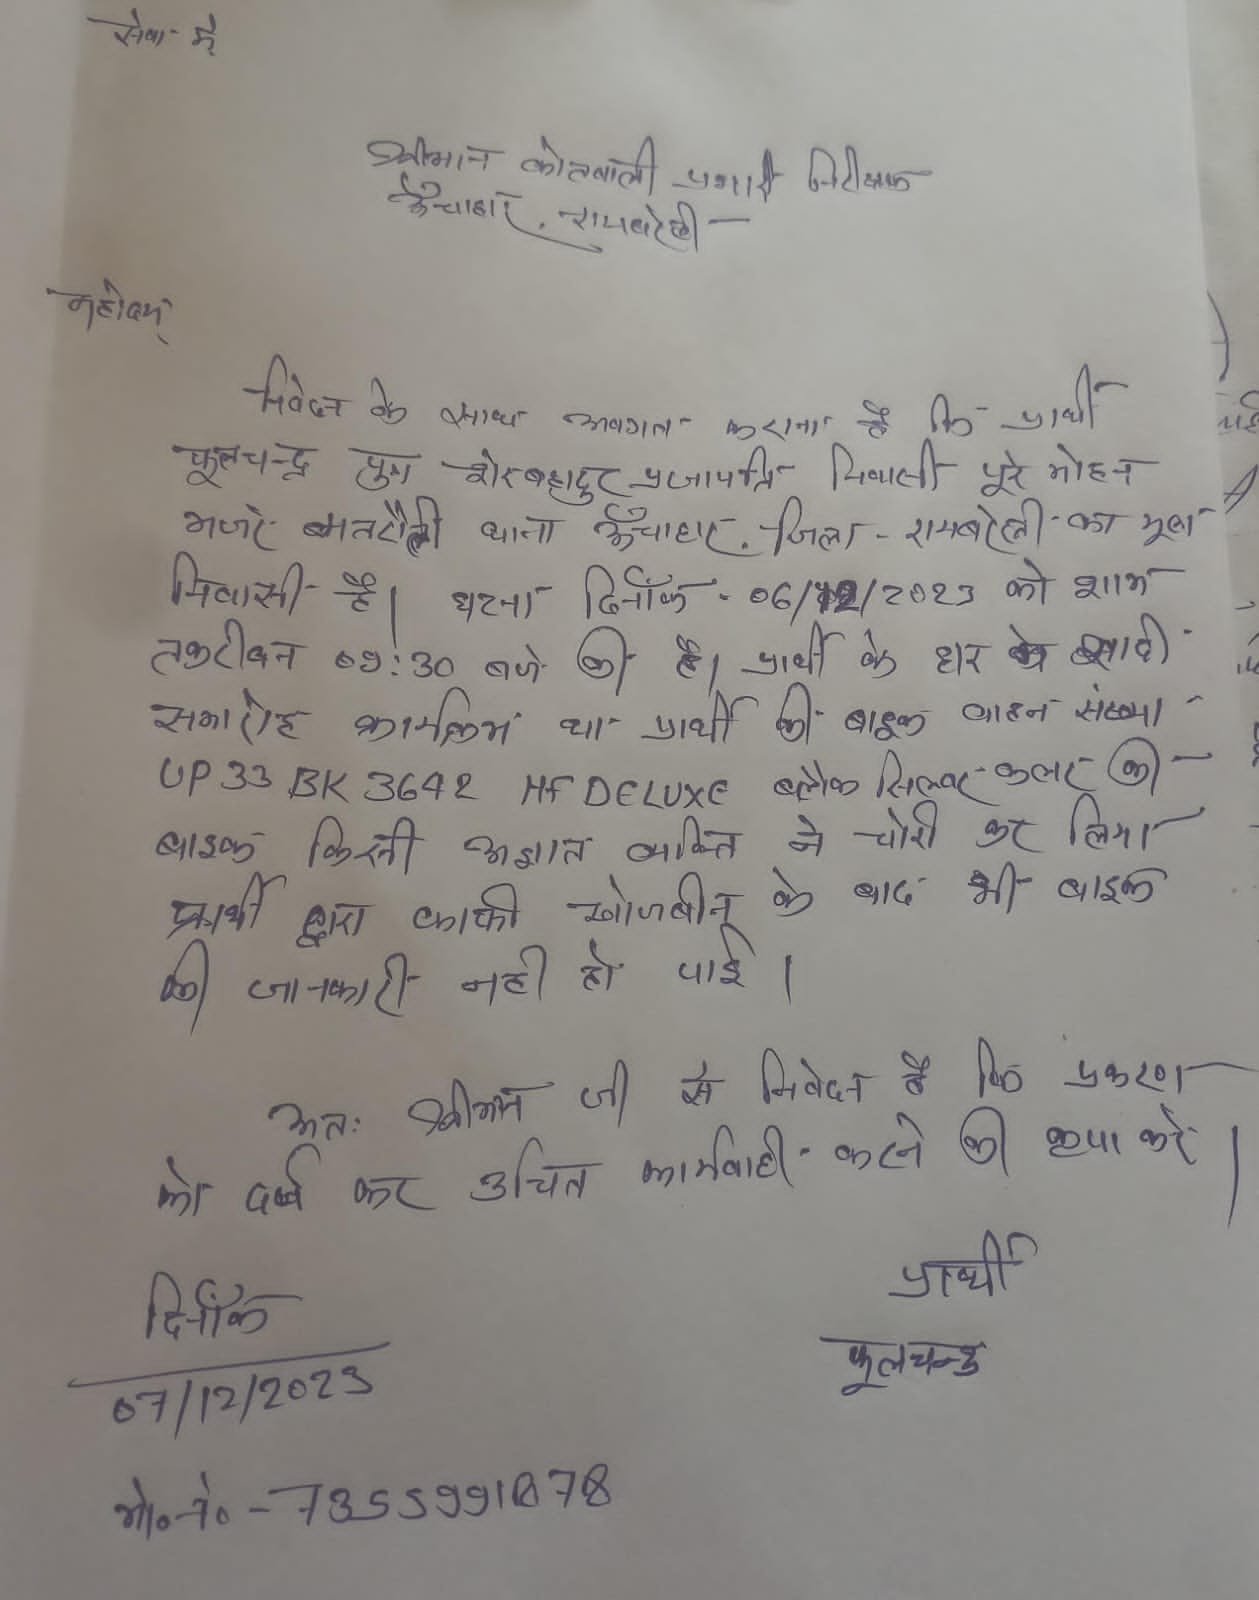 सेवा में
श्रीमान कोतवाली प्रभारी निरीक्षक
ऊँचाहार, रायबरेली
महोदय,
निवेदन के साथ अवगत कराना है कि प्रार्थी
फूलचन्द्र पुत्र शेरबहादुर प्रजापति निवासी पूरे मोहन
मजरे थाना ऊँचाहार, जिला - रायबरेली का मूल
निवासी है। घटना दिनाँक - 06/12/2023 को शाम
तकरीबन 09:30 बजे की है। प्रार्थी के घर सादी
समारोह कार्यक्रम था प्रार्थी की बाइक वाहन संख्या
UP 33 BK 3642 HF DELUXE ब्लैक सिल्वर कलर की
बाइक किसी अज्ञात व्यक्ति ने चोरी कर लिया
प्रार्थी द्वारा काफी खोजबीन के बाद भी बाइक
की जानकारी नही हो पाई।
अतः श्रीमान जी से निवेदन है कि प्रकरण
को दर्ज कर उचित कार्यवाही करने की कृपा करे।
प्रार्थी
फूलचन्द्र
दिनाँक
07/12/2023
मो०न०- 7355991878